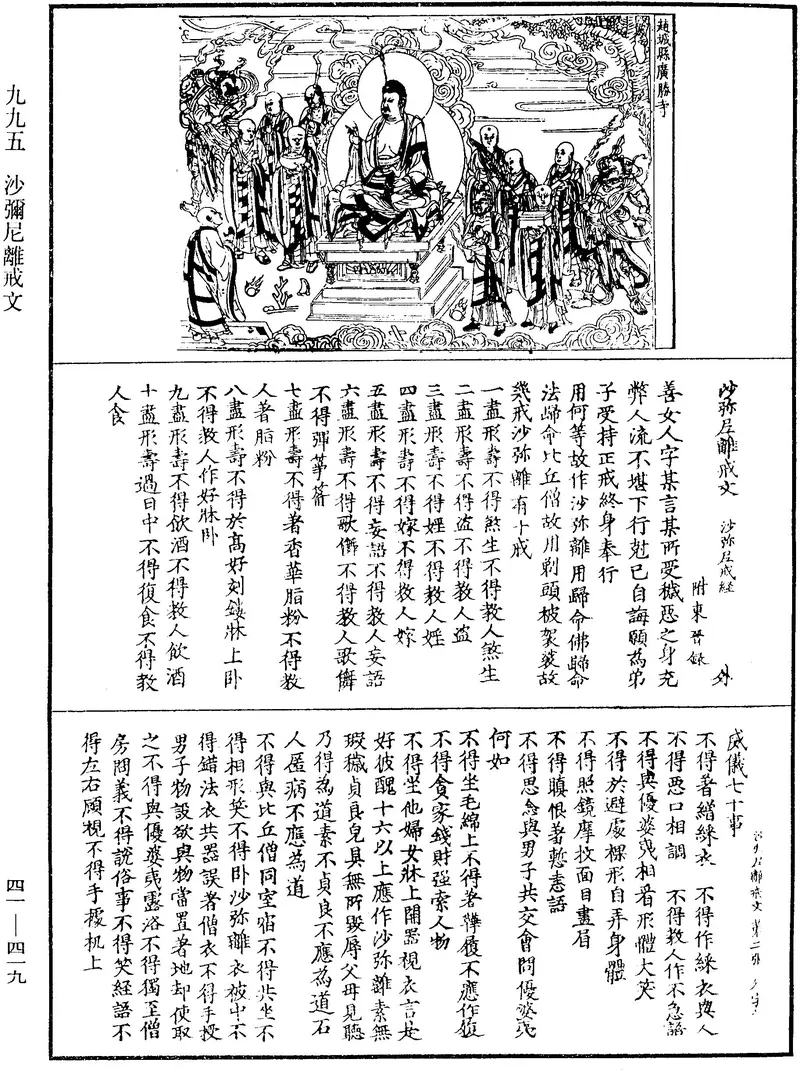 九九五　沙彌尼離戒文
四一—四一九
趙城縣廣勝寺
沙弥尼離戒文　沙弥尼戒經　外
附東晉錄
善女人字某言某所受穢惡之身充
弊人流不堪下行尅己自誨願為弟
子受持正戒終身奉行
用何等故作沙弥離用歸命佛歸命
法歸命比丘僧故用剃頭被袈裟故
幾戒沙弥離有十戒
一盡形壽不得煞生不得教人煞生
二盡形壽不得盜不得教人盜
三盡形壽不得婬不得教人婬
四盡形壽不得嫁不得教人嫁
五盡形壽不得妄語不得教人妄語
六盡形壽不得歌儛不得教人歌儛
不得彈箏簫
七盡形壽不得著香華脂粉不得教
人著脂粉
八盡形壽不得於高好刻鏤牀上卧
不得教人作好牀卧
九盡形壽不得飲酒不得教人飲酒
十盡形壽過日中不得復食不得教
人食
沙弥尼離戒文　第二張
威儀七十事
不得著繒綵衣　不得作綵衣與人
不得惡口相調　不得教人作不急語
不得與優婆夷相看形體大笑
不得於避處裸形自弄身體
不得照鏡摩抆面目畫眉
不得瞋恨著愁恚語
不得思念與男子共交會問優婆夷
何如
不得坐毛綿上不得著鞾履不應作履
不得貪家錢財強索人物
不得坐他婦女牀上開器視衣言是
好彼醜十六以上應作沙弥離素無
瑕穢貞良皃具無所毀辱父母見聽
乃得為道素不貞良不應為道石
人匿病不應為道
不得與比丘僧同室宿不得共坐不
得相形笑不得卧沙弥離衣被中不
得錯法衣共器誤著僧衣不得手授
男子物設欲與物當置著地却使取
之不得與優婆夷露浴不得獨至僧
房問義不得說俗事不得笑經語不
得左右顧視不得手據机上